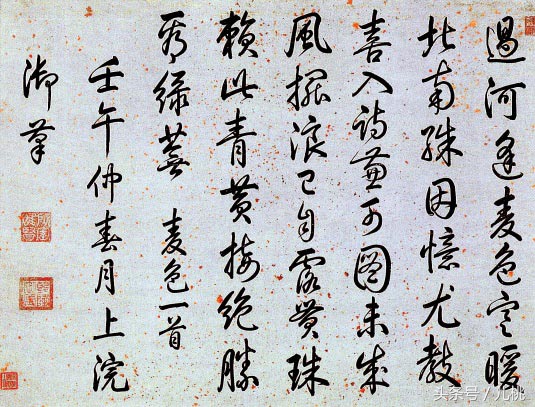 過河逢麥色寒暖
北南殊因憶尤教
喜入詩兼可圖未成
風擺浪已自露貫珠
賴此青黃接絕勝
綠蕪 麥色一首
壬午仲春月上浣
御筆
头条号